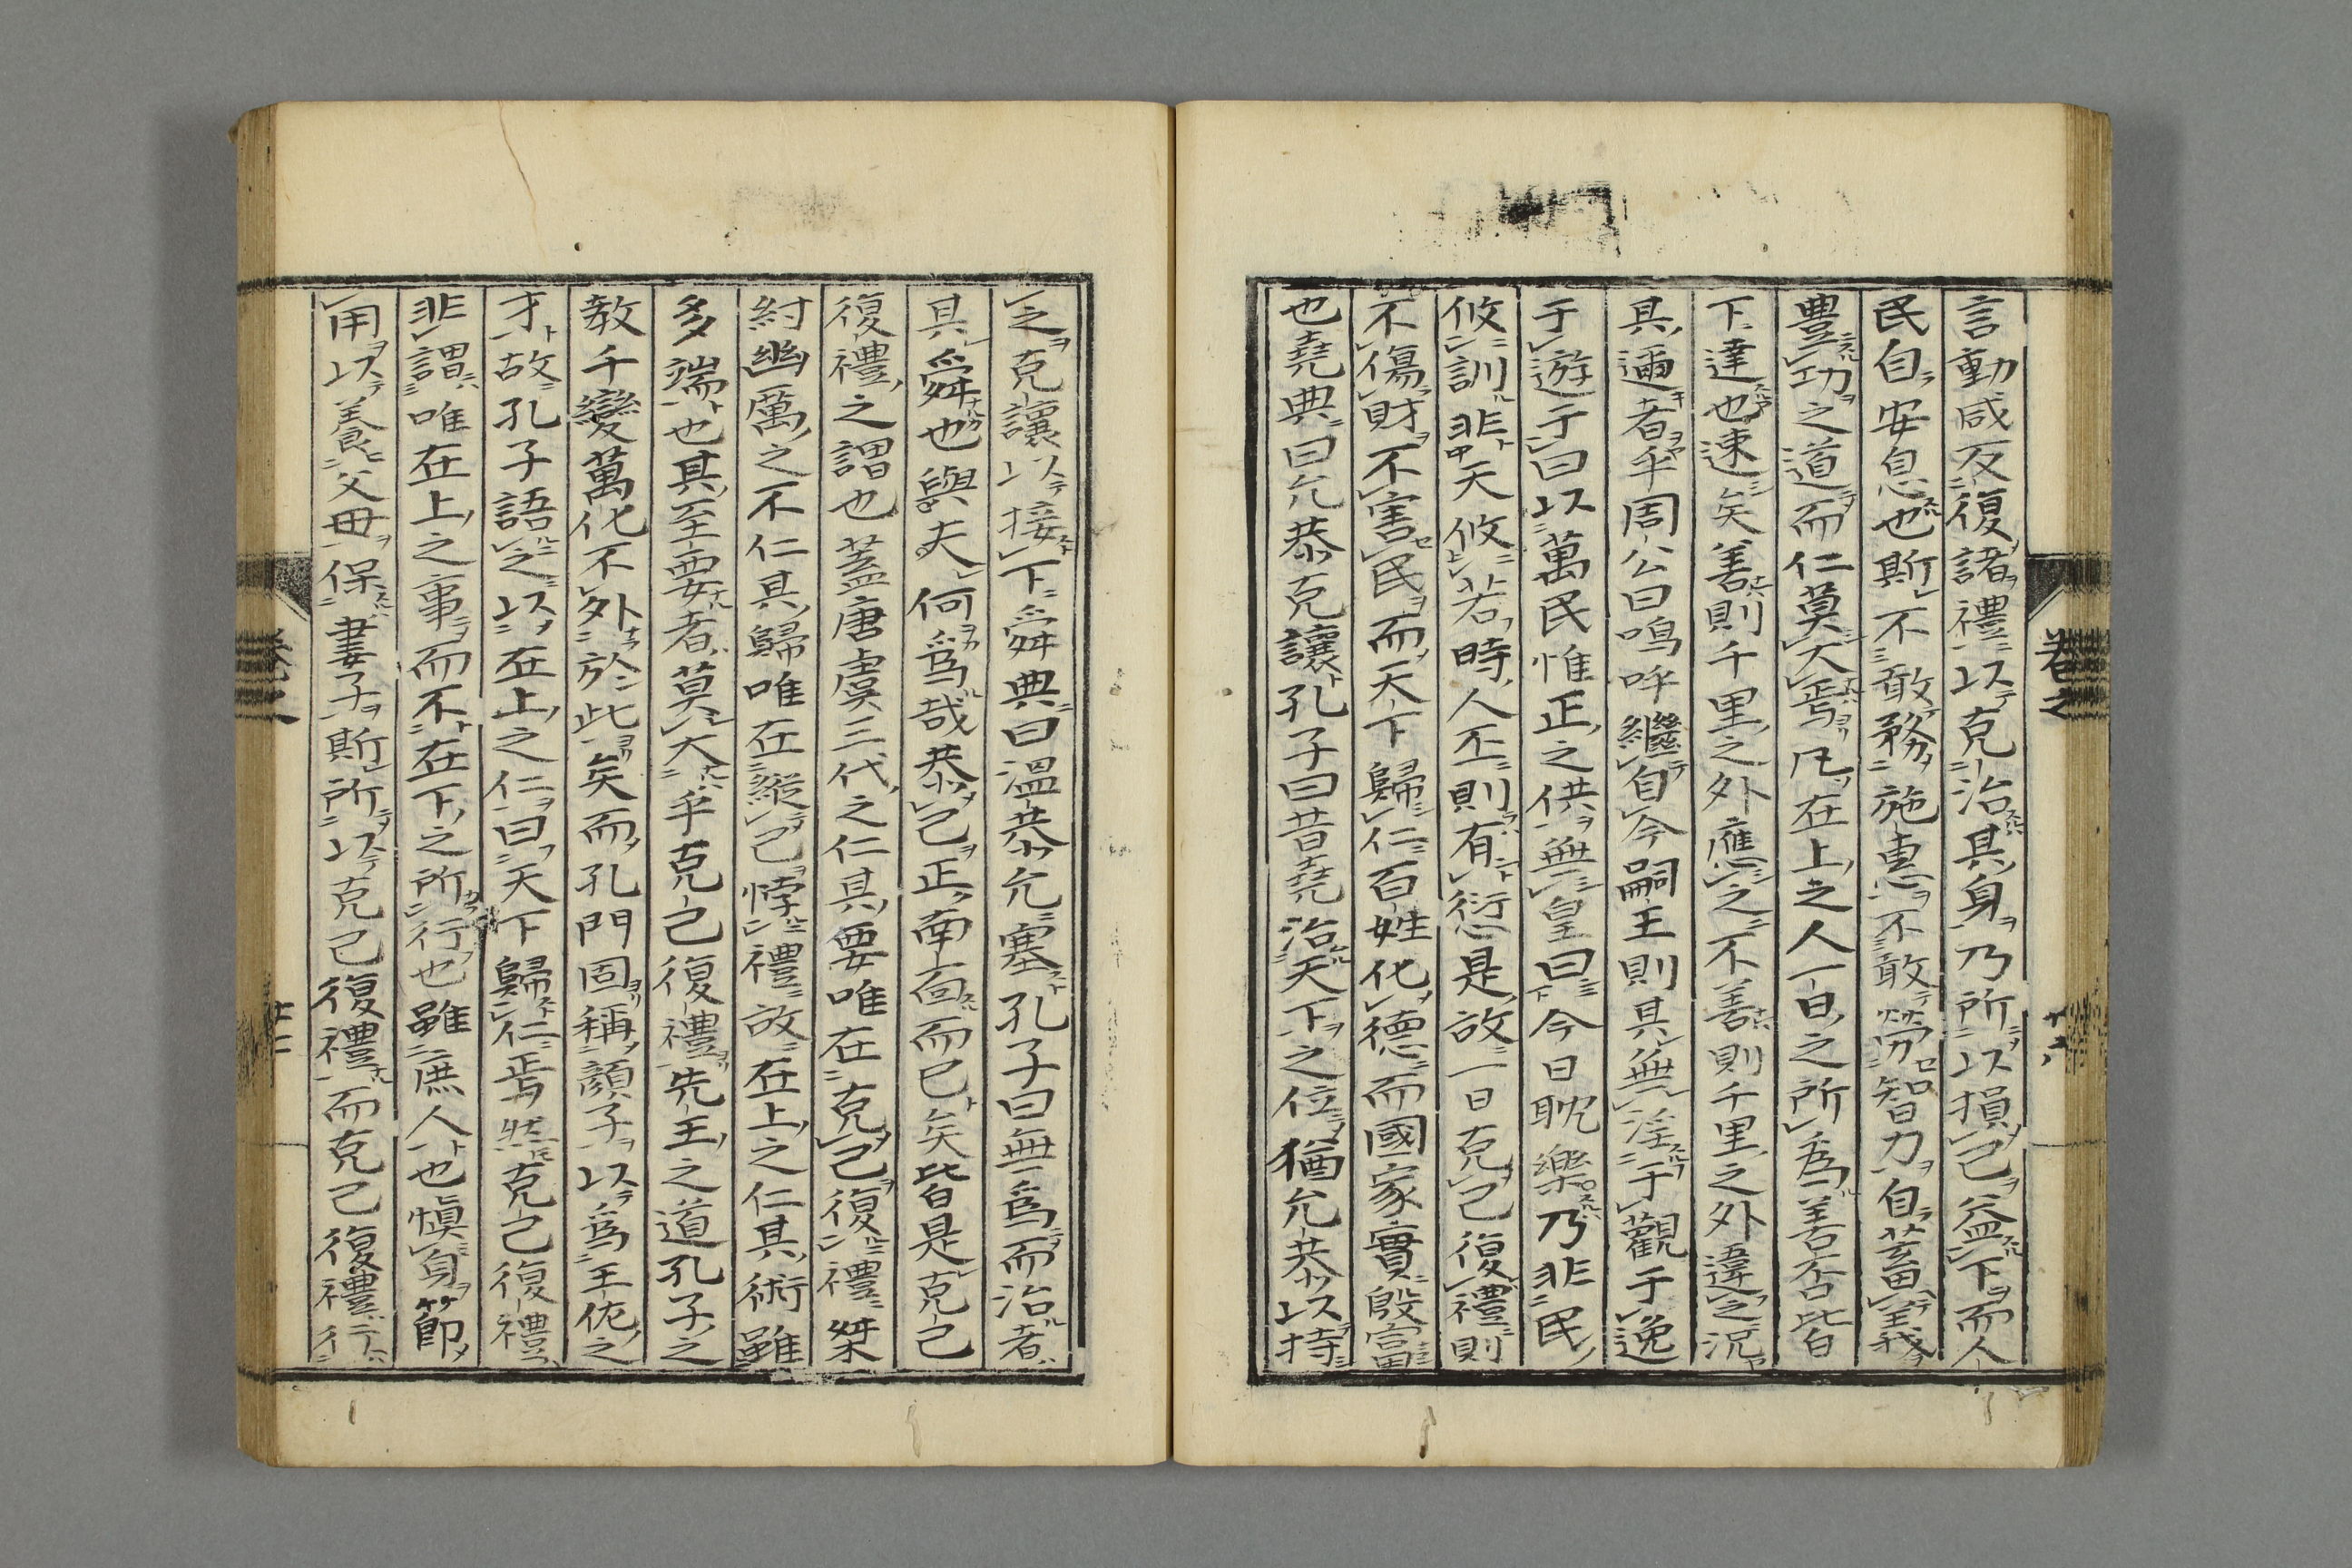 言動咸反復諸禮以克治其身乃所以損己益下而人
民自安息也斯不敢務施惠不敢勞智力自蓄義
豊功之道而仁莫大焉凡在上之人一日之所爲善否皆
下達也速矣善則千里之外應之不善則千里之外違之況
其邇者乎周公曰嗚呼繼自今嗣王則其無淫于觀于逸
于遊于曰以萬民惟正之供無皇曰今日耽樂乃非民
攸訓非天攸若時人丕則有衍是故一日克己復禮則
不傷財不害民而天下歸仁百姓化德而國家實殷富
也堯典曰允恭克讓孔子曰昔堯治天下之位猶允恭以持
之克讓以接下舜典曰溫恭允塞孔子曰無爲而治者
其舜也與夫何爲哉恭己正南面而已矣皆是克己
復禮之謂也蓋唐虞三代之仁其要唯在克己復禮桀
紂幽厲之不仁其歸唯在縱己悖禮故在上之仁其術雖
多端也其至要者莫大乎克己復禮先王之道孔子之
教千變萬化不外於此矣而孔門固稱顏子以爲王佐之
才故孔子語之以在上之仁曰天下歸仁焉然克己復禮
非謂唯在上之事而不在下之所行也雖庶人也愼身節
用以養父母保妻子斯所以克己復禮而克己復禮行
卷之
卷之
廿二